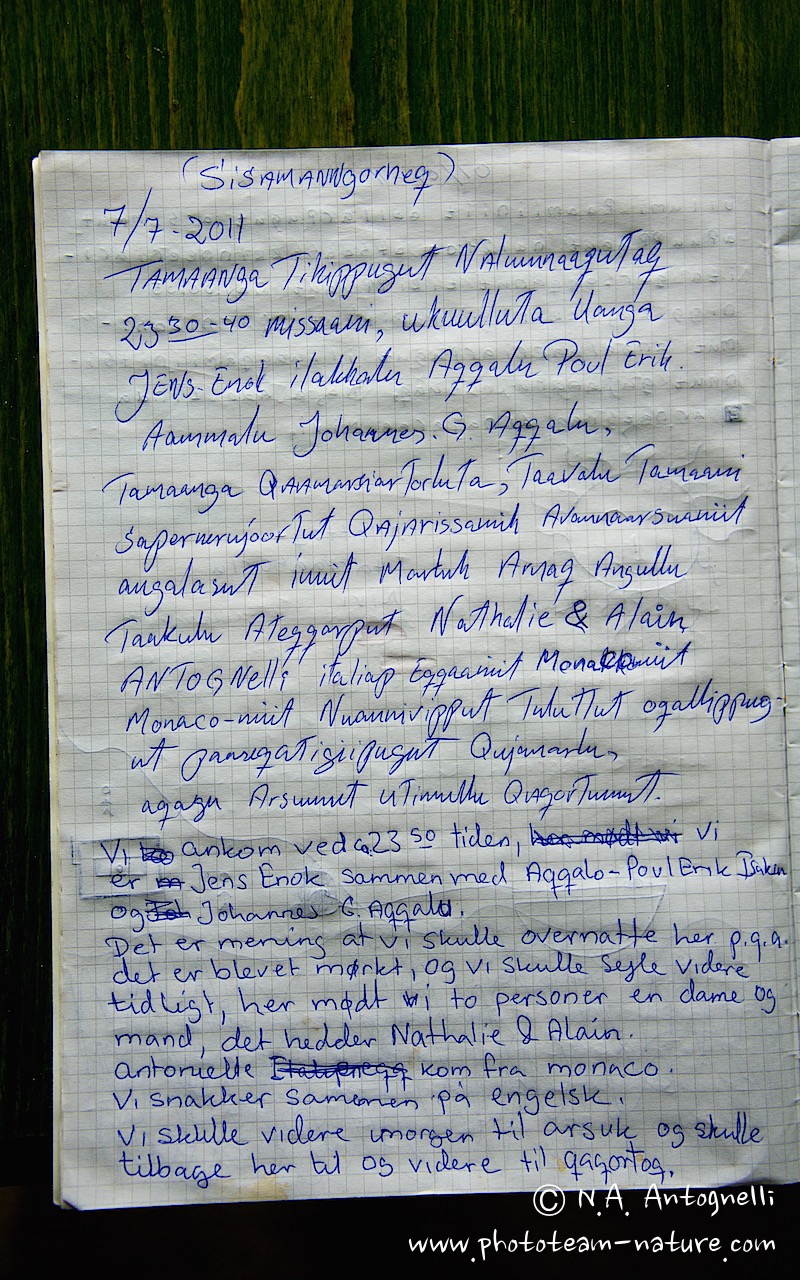 (SiSAMANNgorneq)
7/7-2011
TAMAANga Tikippugut NAluunnaaqutaq
23 30-40 missaani, ukuulluta Uanga
JENS-Enok ilakkalu Aqqalu Poul Erik.
Aammalu Johannes. G. Aqqalu,
Tamaanga QAAmarsiarTorluta, Taavalu Tamaani
QAJArissamik Avannaarsuamiit
angalasut inuit Marluk Arnaq Angullu
Taakulu Ateqqarput Nathalie & Alain,
ANTOGNelli italiap Eqqaaniit
Monaco-miit Nuannivipput Tuluttut oqallippug-
ut Qujanarlu,
aqagu Arsummut UTimullu QaqorTumut.
Vi ankom ved ca. 23 50 tiden, her mødt vi vi
er Jens Enok sammen med Aqqalo-Poul Erik Isaken
og Johannes G. Aqqalu.
Det er mening at vi skulle overnatte her p.g.a.
det er blevet mørkt, og vi skulle sejle videre
tidligt, her mødt vi to personer en dame og
mand, det hedder Nathalie & Alain.
antonielle kom fra monaco.
Vi snakker sammen på engelsk.
Vi skulle videre imorgen til arsuk og skulle
tilbage her til og videre til qaqortoq.
© N.A. Antognelli
www.phototeam-nature.com